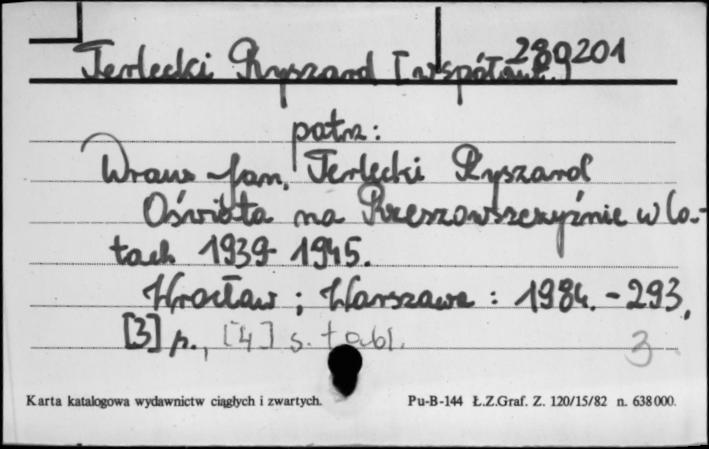 289201
Terlecki Ryszard [współaut.]
patrz:
Wraus Jan, Terlecki Ryszard
Oświata na Rzeszowszczyźnie w la-
tach 1939-1945.
Wrocław ; Warszawa : 1984. - 293,
[3] p., [4] s. tabl.
3
Karta katalogowa wydawnictw ciągłych i zwartych. Pu-B-144 Ł.Z.Graf. Z. 120/15/82 n. 638000.